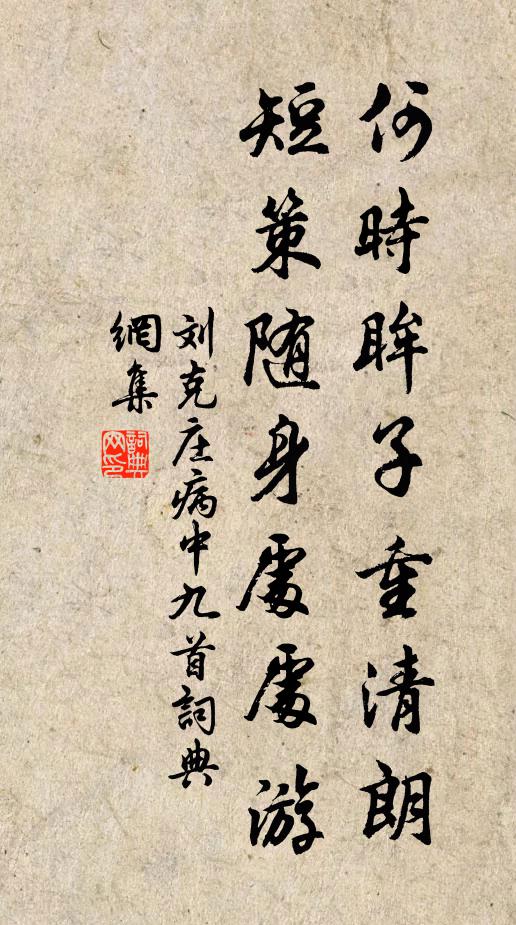 何時眸子重清朗
短策随身處處游
刘克庄病中九首詞典
網集
詞典网印